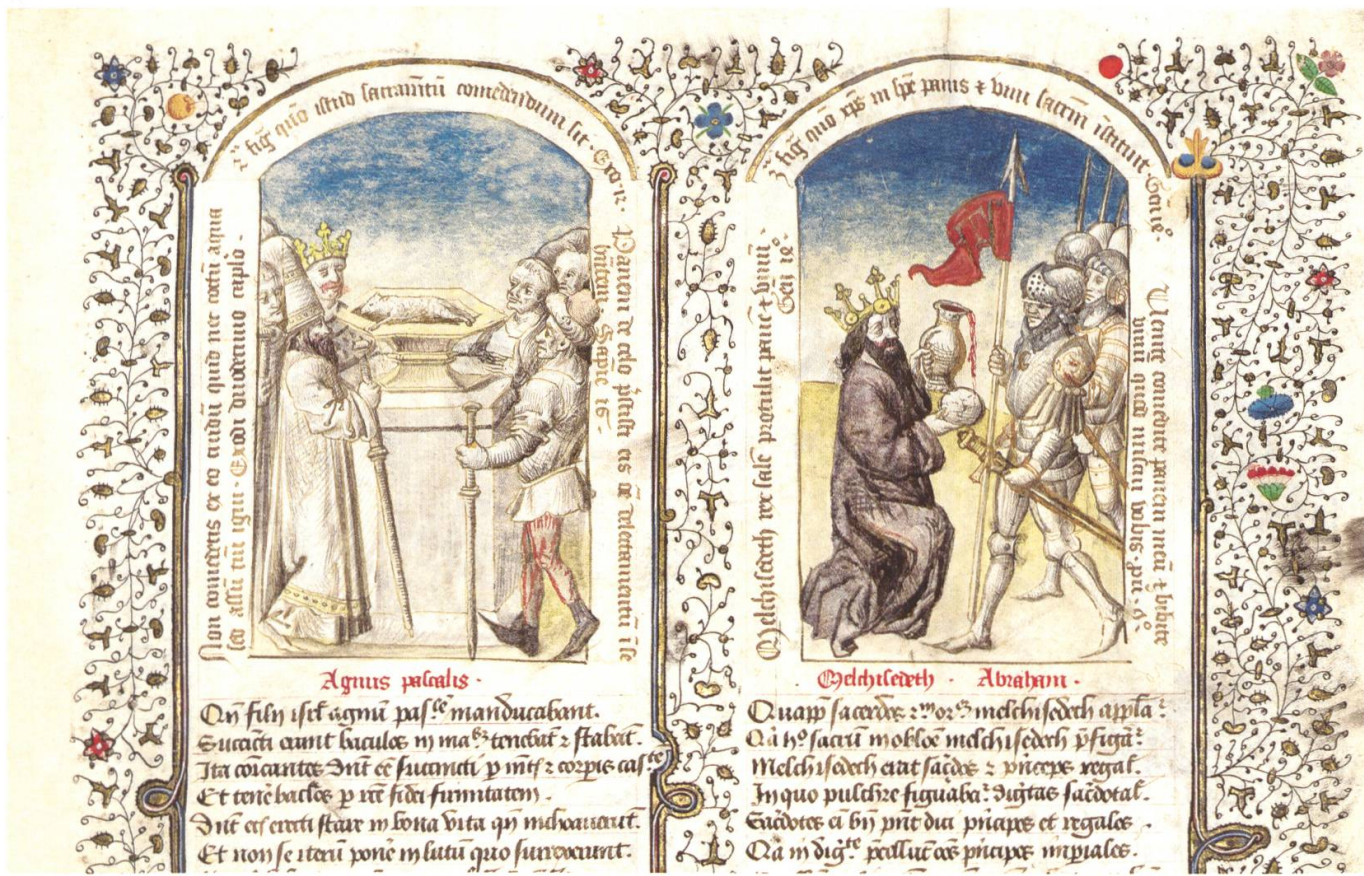 fig quo istud sacramtu comedendum sit . Exo . 12 .
Non comedetis ex eo crudu quid nec coctu aqua
sed assu tm igni . Exodi duodecimo caplo .
Panem de celo pstitisti eis oe delectamentu i se
hntem . Sapie 16 .
Agnus pascalis .
Qn filij isrl agnu pas manducabant .
Succicti erunt baculos in ma tenebat z stabat .
Ita coicantes dnt ee succincti p mts z corpis cas
Et tene baclos p rce fidei firmitatem .
Dnt eciam erecti stare in bona vita qm inchoauerut .
Et non se iteru pone in lutu quo surrexerunt .
fig quo xps in spe panis z vini sacrm istituit . Gene .
Melchisedeth rex sale protulit pane z vinu .
Gen 14
Venite comedite panem meu z bibite
vinu quod miscui vobis . pu 9
Melchisedeth . Abraham .
Melchisedech erat sacdos z pnceps regal .
In quo pulchre figuaba digtas sacdotal .
Sacdotes ei bn pnt dici pncipes et regales .
Qa in dig pcellut oes pncipes impiales .